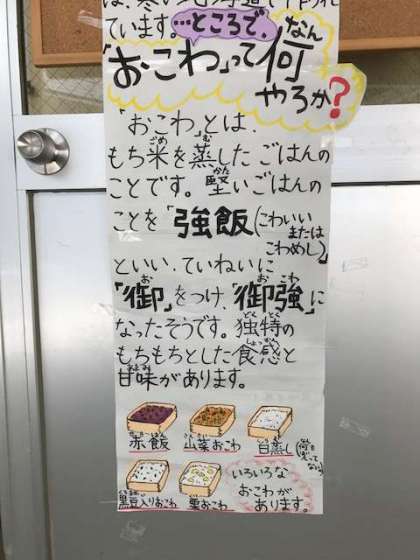 は、寒い
ています。…ところで、
「おこわ」って何なん
やろか?
「おこわ」とは、
もち米を蒸したごはんの
ことです。堅いごはんの
ことを「強飯(こわいい
または
こわめし)」
といい、ていねいに
「御」をつけ、「御強」に
なったそうです。独特の
もちもちとした食感と
甘味があります。
赤飯 山菜おこわ 白蒸し
黒豆入りおこわ 栗おこわ
いろいろな
おこわが
あります。